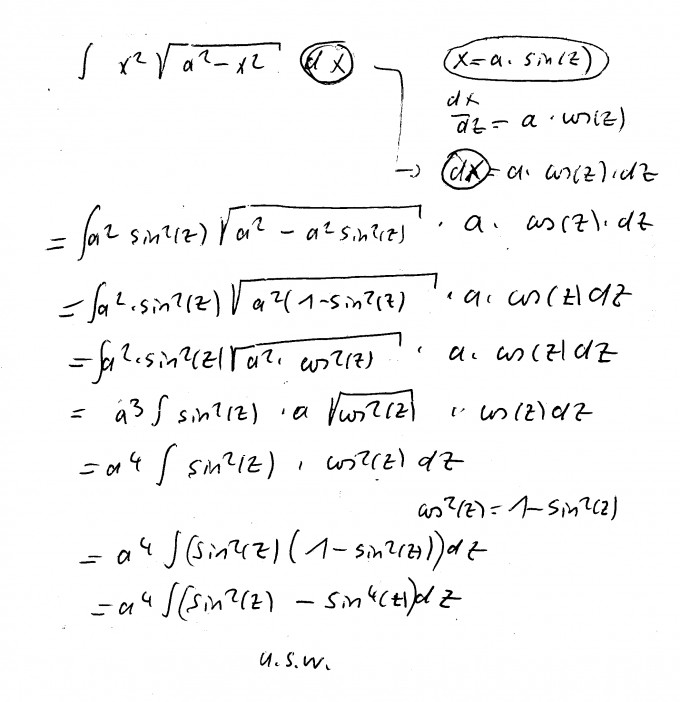 ∫ x² √(a² - x²) dx → x = a · sin(z)
dx/dz = a · cos(z)
→ dx = a · cos(z) · dz
= ∫a² sin²(z) √(a² - a² sin²(z)) · a · cos(z) · dz
= ∫a² · sin²(z) √(a²(1-sin²(z)) · a · cos(z) dz
= ∫a² · sin²(z) √(a² · cos²(z)) · a · cos(z) dz
= a³ ∫ sin²(z) · a √(cos²(z)) · cos(z) dz
= a⁴ ∫ sin²(z) · cos²(z) dz
cos²(z) = 1 - sin²(z)
= a⁴ ∫(sin²(z) (1 - sin²(z))) dz
= a⁴ ∫(sin²(z) - sin⁴(z)) dz
u.s.w.